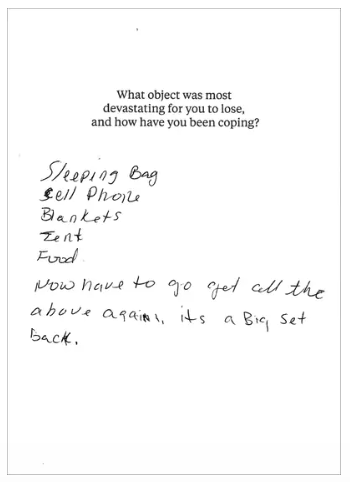 What object was most
devastating for you to lose,
and how have you been coping?
Sleeping Bag
Cell Phone
Blankets
Tent
Food
Now have to go get all the
above again, its a Big set
back.